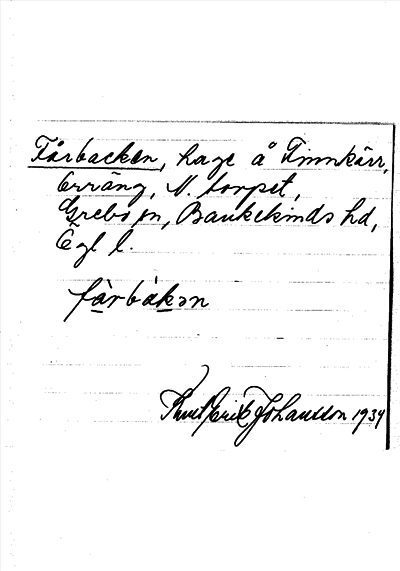 Fårbacken, hage å Finnkärr,
Orräng, N. torpet,
Grebo sn, Bankekinds hd,
Ögl l.
fårbåkən
Knut Erik Johansson 1934